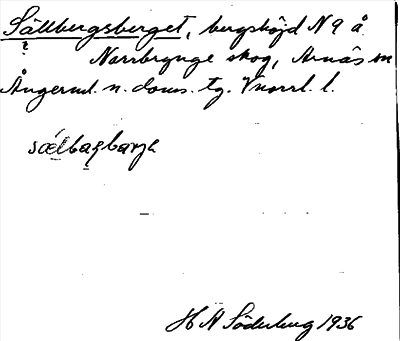 Sällbergsberget, bergshöjd N 9 å
i Norrbrynge skog, Arnäs sn
Ångerml. n. doms. tg. Vnorrl. l.
sællbagbarja
H A Söderberg 1936